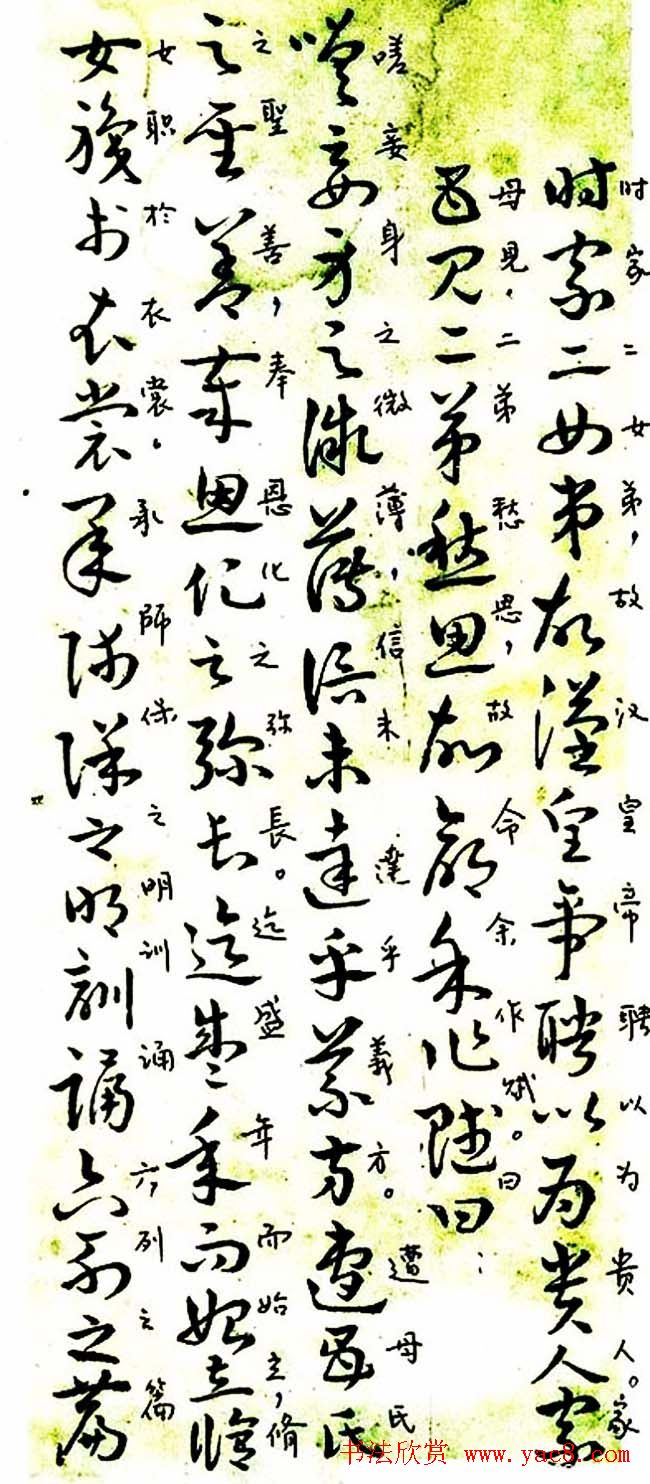 时家二女弟，故汉皇帝聘以为贵人。家
时家二女弟故漢皇帝聘以为贵人家
母見，二弟愁思，故令余作赋。曰：
母见二弟愁思故命余作賦曰
嗟妾身之微薄，信未達乎義方。遭母氏
嗟妾身之微薄信未達乎義方遭母氏
之聖善，奉恩化之弥長。迄盛年而始立，脩
之聖善奉恩化之弥长迄盛年而始立脩
女职於衣裳。承師保之明训诵六列之篇
女職於衣裳承師保之明訓誦六列之篇
书法欣赏 www.yac8.com